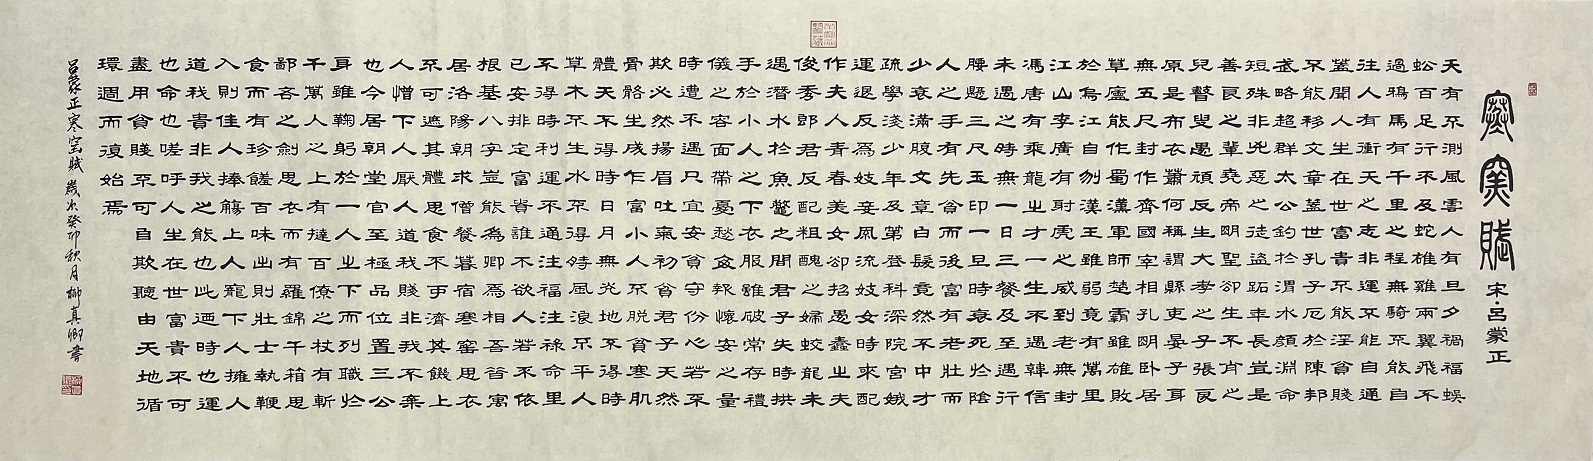 寒窯賦
宋·呂蒙正
天有不測風雲人有旦夕禍福蜈
蚣百足行不及蛇雄雞兩翼飛不
過鴉馬有千里之程無騎不能自
注人有衝天之志非運不能自通
蓋聞人生在世富貴不能淫貧賤
不能移文章蓋世孔子厄於陳邦
武略超群太公釣於渭水顏淵命
短殊非兇惡之徒盜跖年長豈是
善良之輩堯帝明聖卻生不肖之
兒瞽叟愚頑反生大孝之子張良
原是布衣蕭何稱謂縣吏晏子身
無五尺封作齊國宰相孔明臥居
草廬能作蜀漢軍師楚霸雖雄敗
於烏江自刎漢王雖弱竟有萬里
江山李廣有射虎之威到老無封
馮唐有乘龍之才一生不遇韓信
未遇之時無一日三餐及至遇行
腰懸三尺玉印一旦時衰死於陰
人之手有先貧而後富有老壯而
少衰滿腹文章白髮竟然不中才
疏學淺少年及第登科深院宮娥
運退反為妓妾風流妓女時來配
作夫人青春美女卻招愚蠢之夫
俊秀郎君反配粗醜之婦蛟龍未
遇潛水於魚鱉之間君子失時拱
手於小人之下衣服雖破常存禮
儀之容面帶憂愁每報懷安之量
時遭不遇只宜安貧守份心若不
欺必然揚眉吐氣初貧君子天然
骨骼生成乍富小人不脫貧寒肌
體天不得時日月無光地不得時
草木不生水不得時風浪不平人
不得時利運不通注福注祿命里
已安排定富貴誰不欲人若不依
根基八字豈能為卿為相吾昔寓
居洛陽朝求僧餐暮宿寒窰思衣
不可遮其體思食不可濟其饑上
人憎下人厭人道我賤非我不棄
也今居朝堂官至極品位置三公
身雖鞠躬於一人之下而列職於
千萬人之上有撻百僚之杖有斬
鄙吝之劍思衣而有羅錦千箱思
食而有珍饈百味出則壯士執鞭
入則佳人捧觴上人寵下人擁人
道我貴非我之能也此迺時也運
也命也嗟呼人生在世富貴不可
盡用貧賤不可自欺聽由天地循
環週而復始焉
呂蒙正寒窑賦歲次癸卯秋月柳真卿書